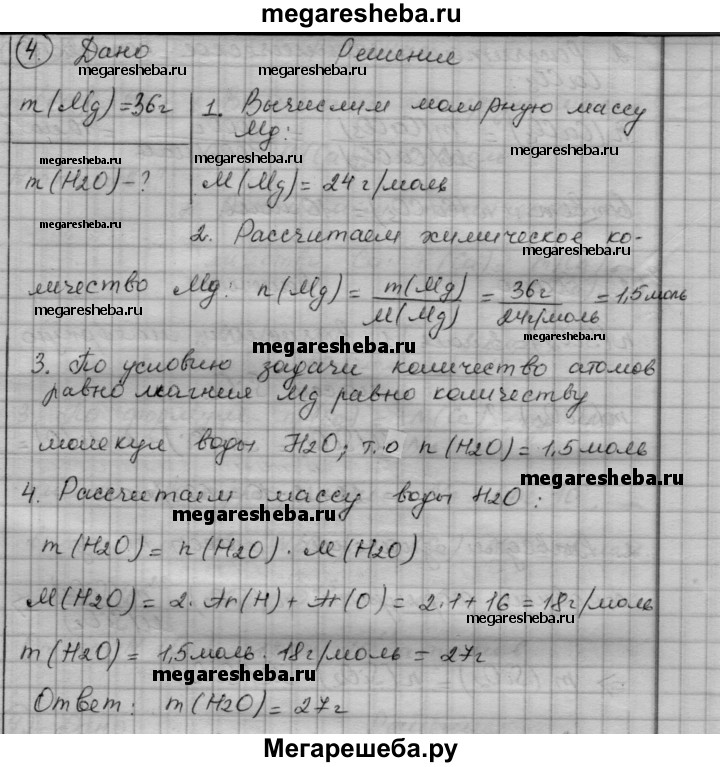 megaresheba.ru
4. Дано Решение
megaresheba.ru megaresheba.ru megaresheba.ru
m(Mg)=36г 1. Вычислим молярную массу
Mg:
megaresheba.ru megaresheba.ru megaresheba.ru
m(H2O)-? M(Mg)=24г/моль
megaresheba.ru megaresheba.ru megaresheba.ru
2. Рассчитаем химическое ко-
личество Mg: n(Mg)= m(Mg)/M(Mg) = 36г/24г/моль = 1,5моль
megaresheba.ru megaresheba.ru
megaresheba.ru
3. По условию задачи количество атомов
равно магния Mg равно количеству
молекул воды H2O; т.о n(H2O)=1,5моль
megaresheba.ru
4. Рассчитаем массу воды H2O:
megaresheba.ru
m(H2O)=n(H2O)·M(H2O)
M(H2O)=2·Ar(H)+Ar(O)=2·1+16=18г/моль
megaresheba.ru
m(H2O)=1,5моль·18г/моль=27г
megaresheba.ru
Ответ: m(H2O)=27г
Мегарешеба.ру